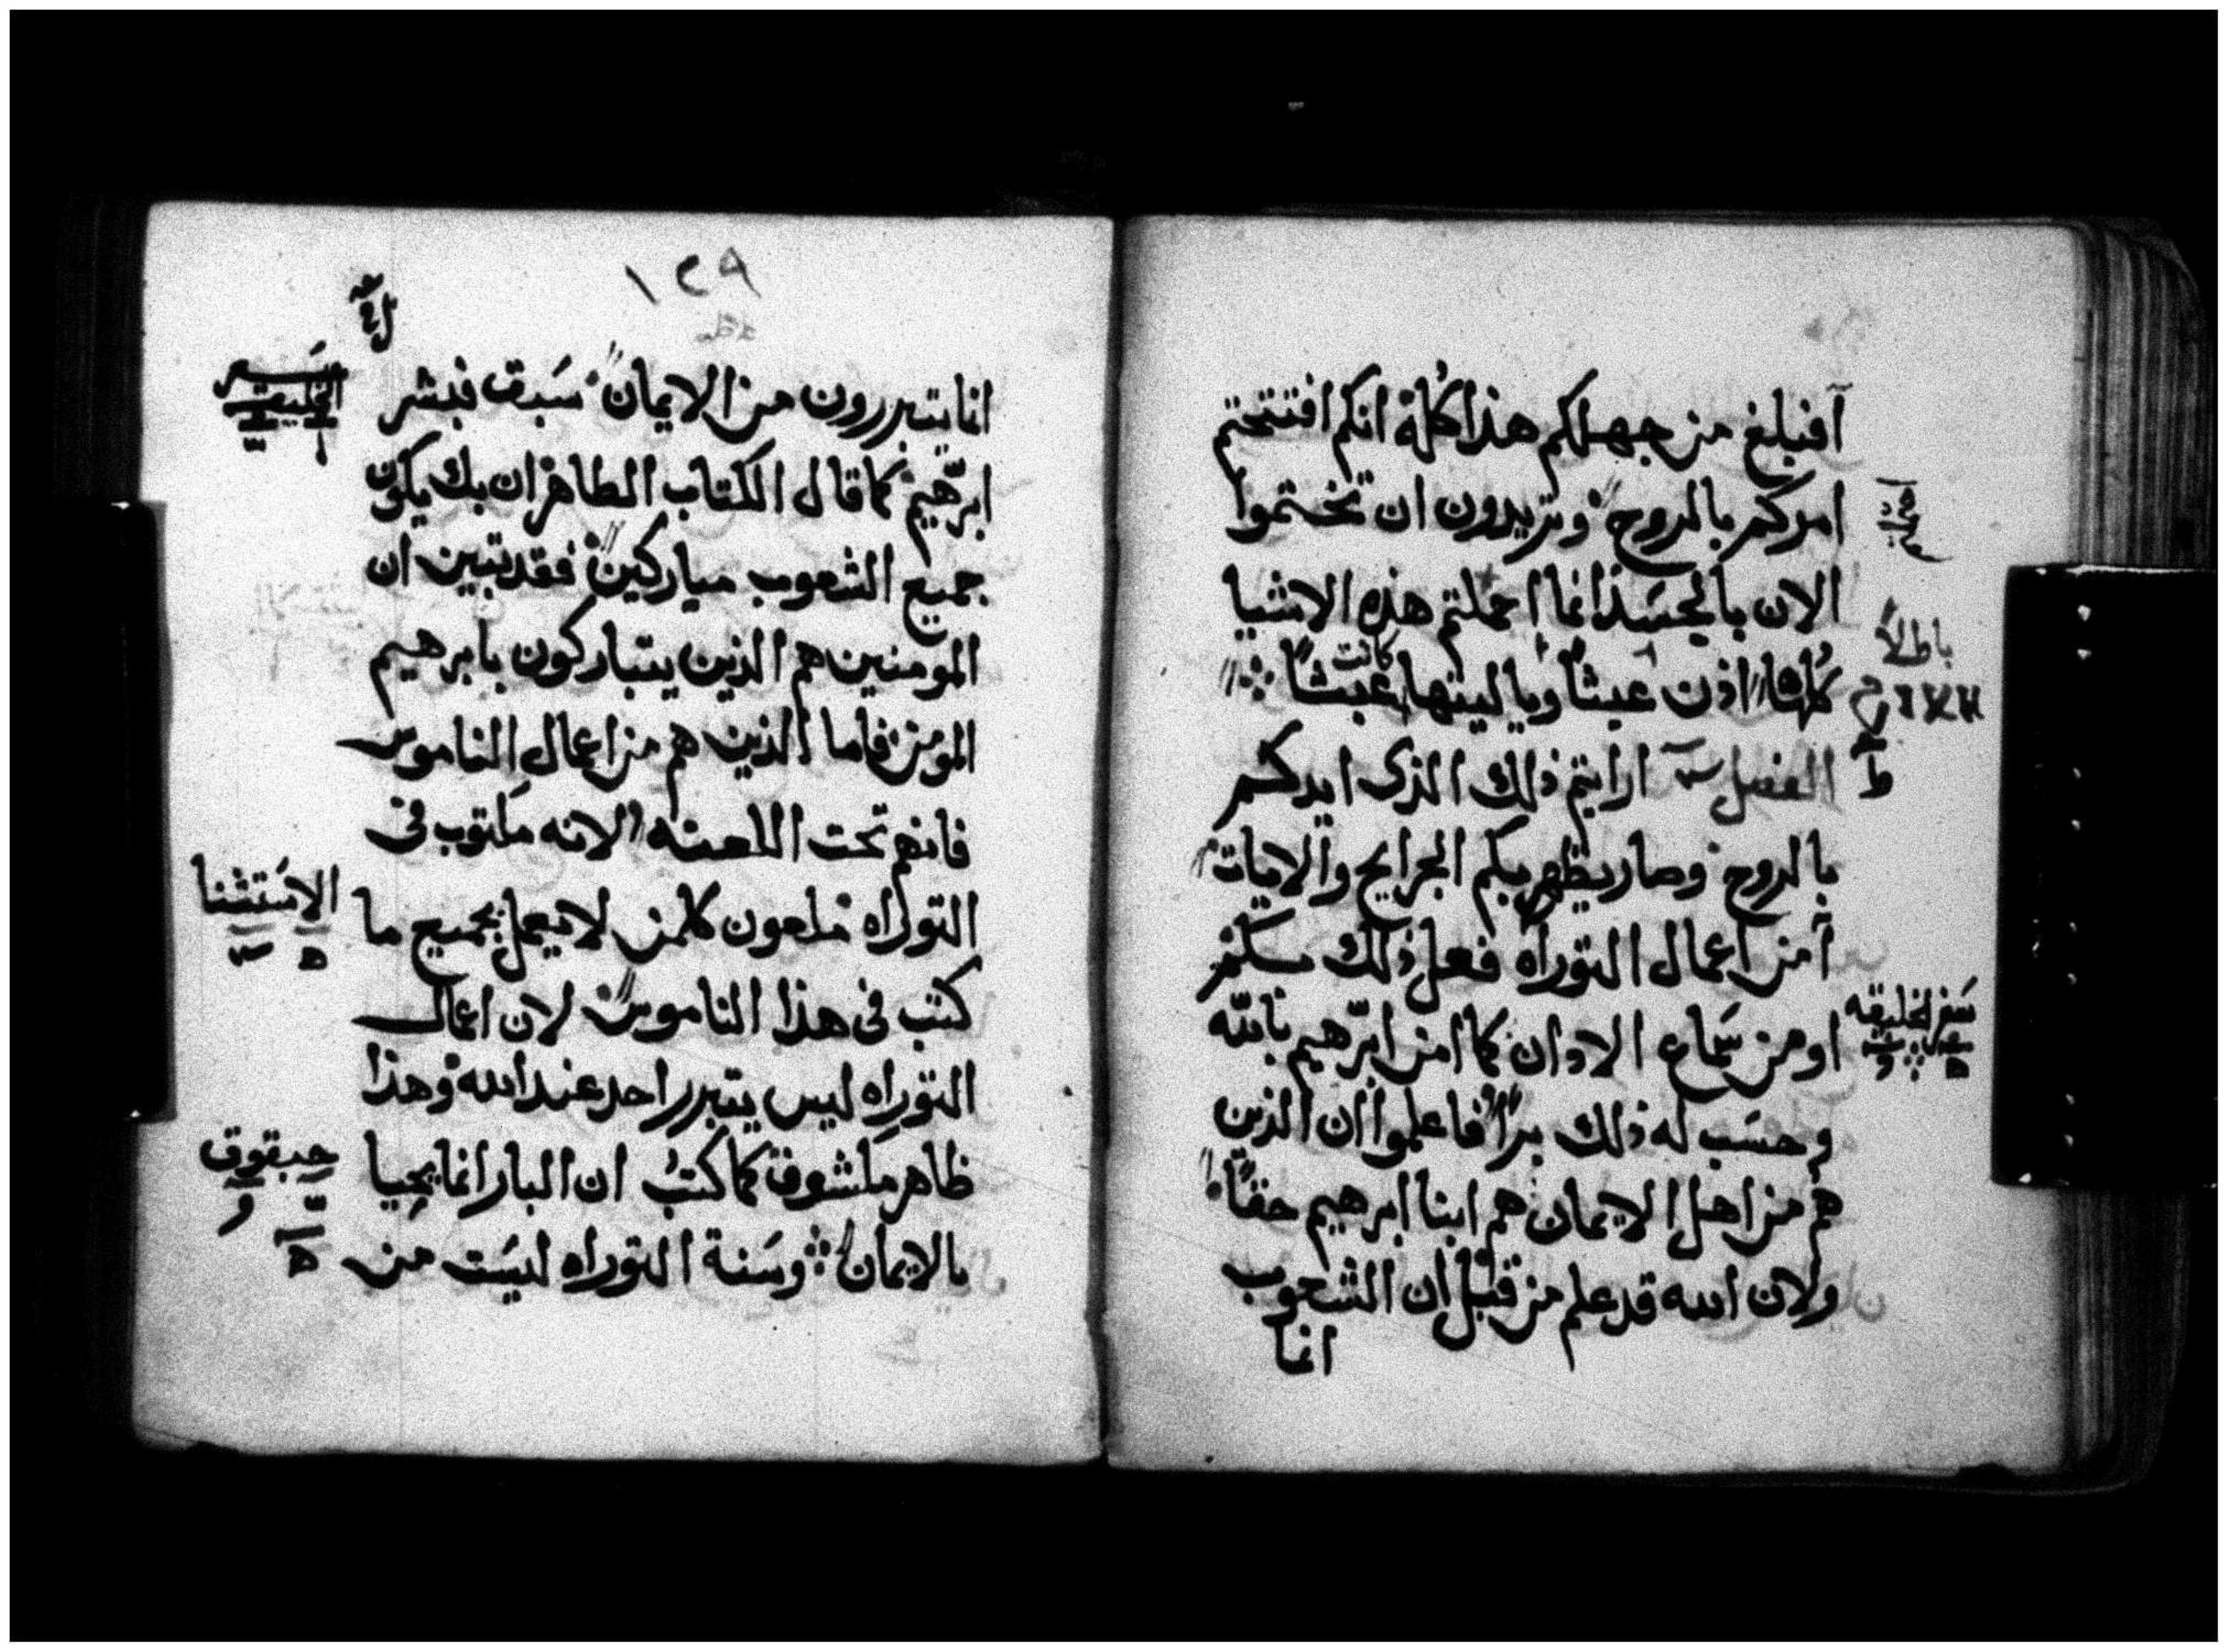 أفبلغ من جهلكم هذا كله انكم افتتحتم
امركم بالروح وتريدون ان تختموا
الان بالجسد انما احملتم هذه الاشيا
باطلاً
كلها اذن عبثاً ويا ليتها كانت عبثاً
الفصل ارايتم ذلك الذى ايدكم
ط
بالروح وصار يظهر بكم الجرايح والايات
أمن اعمال التوراه فعل ذلك بكم
او من سماع الاذان كما امن ابرهيم بالله
سفر الخليقه
وحسب له ذلك براً فاعلموا ان الذين
هم من اهل الايمان هم ابنا ابرهيم حقاً
ولان الله قد علم من قبل ان الشعوب
انما
١٢٩
انما يتبررون من الايمان سَبق فبشر
الخليقة
ابرهيم كما قال الكتاب الطاهر ان بك يكون
جميع الشعوب مباركين فقد تبين ان
المومنين هم الذين يتباركون بابرهيم
المومن فاما الذين هم من اعمال الناموس
فانهم تحت اللعنه لانه مكتوب فى
التوراه ملعون كلمن لا يعمل بجميع ما
الاستثنا
كتب فى هذا الناموس لان اعمال
التوراه ليس يتبرر احد عند الله وهذا
ظاهر مكشوف كما كتب ان البار انما يحيا
حبقوق
بالايمان وسَنة التوراه ليسَت من